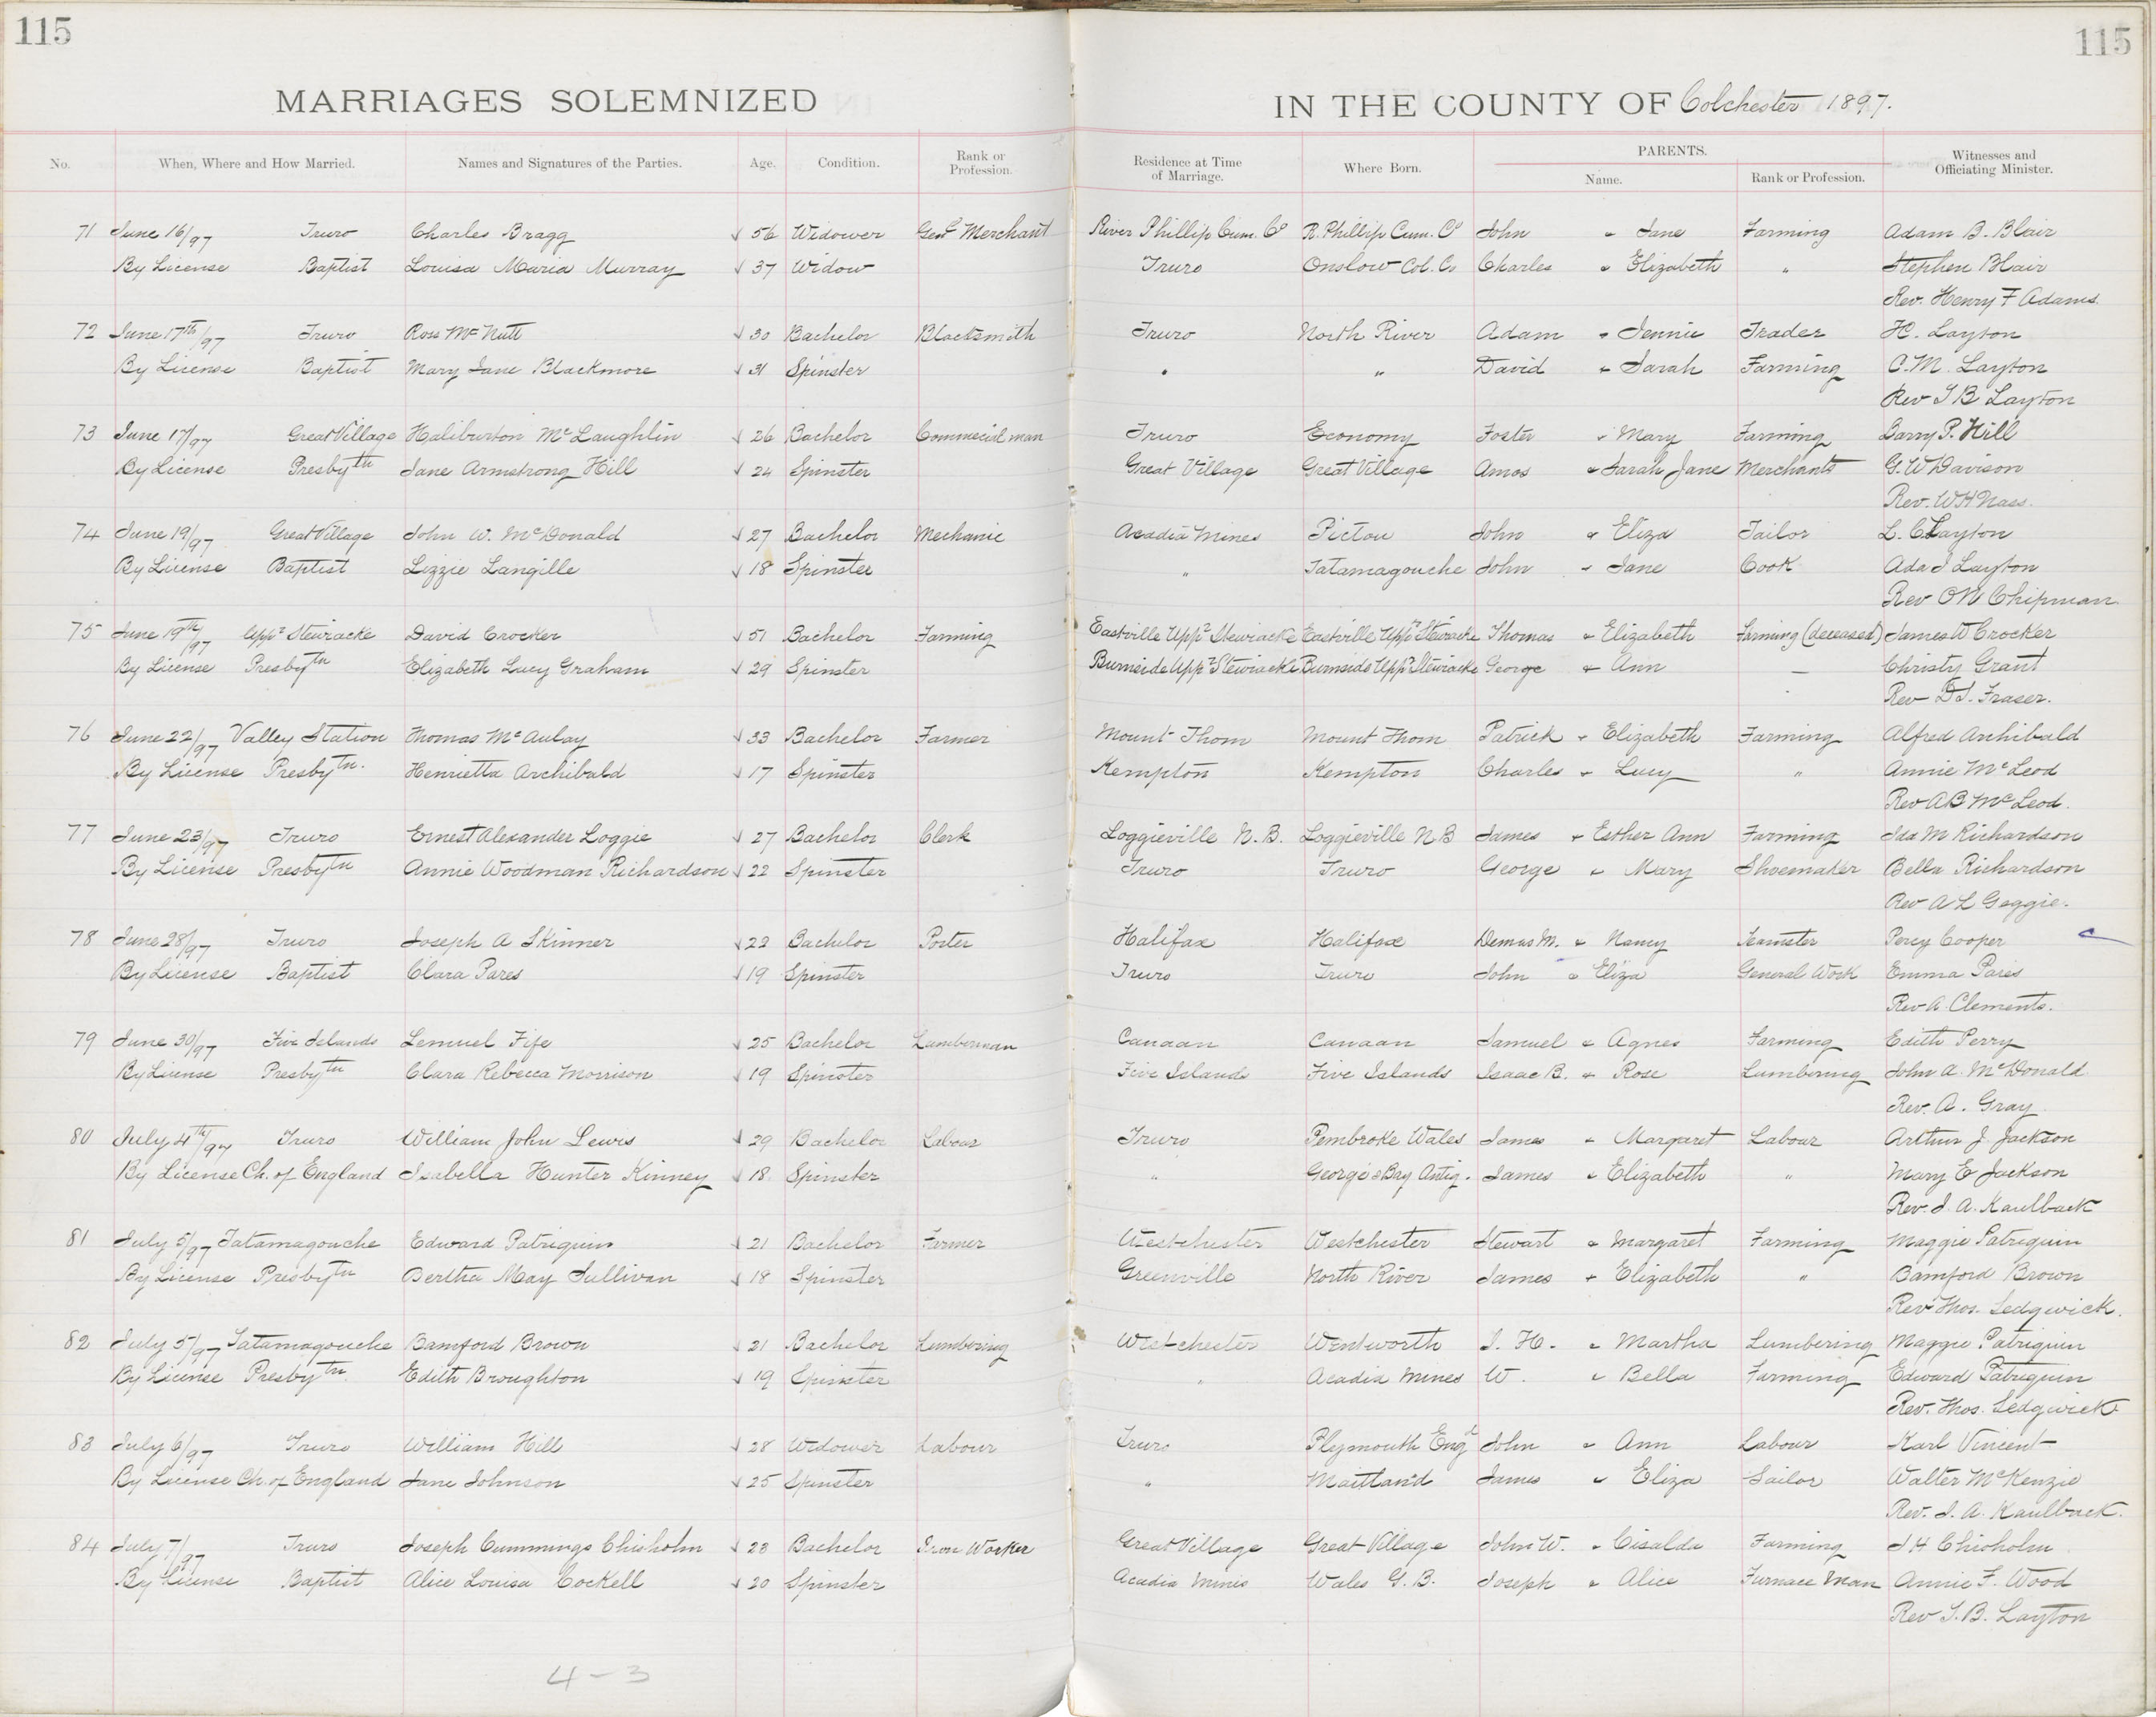 115
115
MARRIAGES SOLEMNIZED
IN THE COUNTY OF Colchester 1897.
No. When, Where and How Married. Names and Signatures of the Parties. Age. Condition. Rank or Profession. Residence at Time of Marriage. Where Born. PARENTS. Name. Rank or Profession. Witnesses and Officiating Minister.
71 June 16/97 Truro Charles Bragg √ 56 Widower Genl Merchant River Phillip Cum. Co R. Phillip Cum. Co John & Jane Farming Adam B. Blair
By License Baptist Louisa Maria Murray √ 37 Widow Truro Onslow Col. Co Charles & Elizabeth " Stephen Blair
Rev. Henry F Adams.
72 June 17th/97 Truro Ross McNutt √ 30 Bachelor Blacksmith Truro North River Adam & Jennie Trader H. Layton
By License Baptist Mary Jane Blackmore √ 31 Spinster " " David & Sarah Farming C. M. Layton
Rev T B Layton
73 June 17/97 Great Village Haliburton McLaughlin √ 26 Bachelor Commecial man Truro Economy Foster & Mary Farming Barry P. Hill
By License Presbytn Jane Armstrong Hill √ 24 Spinster Great Village Great Village Amos & Sarah Jane Merchants G. W Davison
Rev. W H Nass.
74 June 19/97 Great Village John W. McDonald √ 27 Bachelor Mechanic Acadia Mines Pictou John & Eliza Tailor L. C Layton
By License Baptist Lizzie Langille √ 18 Spinster " Tatamagouche John & Jane Cook Ada J Layton
Rev O N Chipman
75 June 19th/97 Uppr Stewiacke David Crocker √ 51 Bachelor Farming Eastville Uppr Stewiacke Eastville Uppr Stewiacke Thomas & Elizabeth Farming (deceased) James W Crocker
By License Presbytn Elizabeth Lucy Graham √ 29 Spinster Burnside Uppr Stewiacke Burnside Uppr Stewiacke George & Ann — Christy Grant
Rev D S. Fraser.
76 June 22/97 Valley Station Thomas McAulay √ 33 Bachelor Farmer Mount Thom Mount Thom Patrick & Elizabeth Farming Alfred Archibald
By License Presbytn. Henrietta Archibald √ 17 Spinster Kempton Kempton Charles & Lucy " Annie McLeod
Rev A B McLeod.
77 June 23/97 Truro Ernest Alexander Loggie √ 27 Bachelor Clerk Loggieville N. B. Loggieville N B James & Esther Ann Farming Ida M Richardson
By License Presbytn Annie Woodman Richardson √ 22 Spinster Truro Truro George & Mary Shoemaker Bella Richardson
Rev A L Geggie.
78 June 28/97 Truro Joseph A Skinner √ 22 Bachelor Porter Halifax Halifax Demus M. & Nancy Teamster Percy Cooper
By License Baptist Clara Pares √ 19 Spinster Truro Truro John & Eliza General Work Emma Pares
Rev A. Clements.
79 June 30/97 Five Islands Lemuel Fife √ 25 Bachelor Lumberman Canaan Canaan Samuel & Agnes Farming Edith Perry
By License Presbytn Clara Rebecca Morrison √ 19 Spinster Five Islands Five Islands Isaac B. & Rose Lumbering John A. McDonald.
Rev. A. Gray
80 July 4th/97 Truro William John Lewis √ 29 Bachelor Labour Truro Pembroke Wales James & Margaret Labour Arthur J. Jackson
By License Ch. of England Isabella Hunter Kinney √ 18 Spinster " George's Bay Antig. James & Elizabeth " Mary E Jackson
Rev. J. A. Kaulback
81 July 5/97 Tatamagouche Edward Patriquin √ 21 Bachelor Farmer Westchester Westchester Stewart & Margaret Farming Maggie Patriquin
By License Presbytn Bertha May Sullivan √ 18 Spinster Greenville North River James & Elizabeth " Bamford Brown
Rev Thos. Sedgwick.
82 July 5/97 Tatamagouche Bamford Brown √ 21 Bachelor Lumbering Westchester Wentworth J. H. & Martha Lumbering Maggie Patriquin
By License Presbytn Edith Broughton √ 19 Spinster " Acadia Mines W. & Bella Farming Edward Patriquin
Rev. Thos. Sedgwick.
83 July 6/97 Truro William Hill √ 28 Widower Labour Truro Plymouth Engd John & Ann Labour Karl Vincent
By License Ch. of England Jane Johnson √ 25 Spinster " Maitland James & Eliza Sailor Walter McKenzie
Rev. J. A. Kaulback.
84 July 7/97 Truro Joseph Cummings Chisholm √ 23 Bachelor Iron Worker Great Village Great Village John W. & Cisalda Farming J H Chisholm
By License Baptist Alice Louisa Cockell √ 20 Spinster Acadia Mines Wales G. B. Joseph & Alice Furnace Man Annie F. Wood
Rev T. B. Layton
4-3